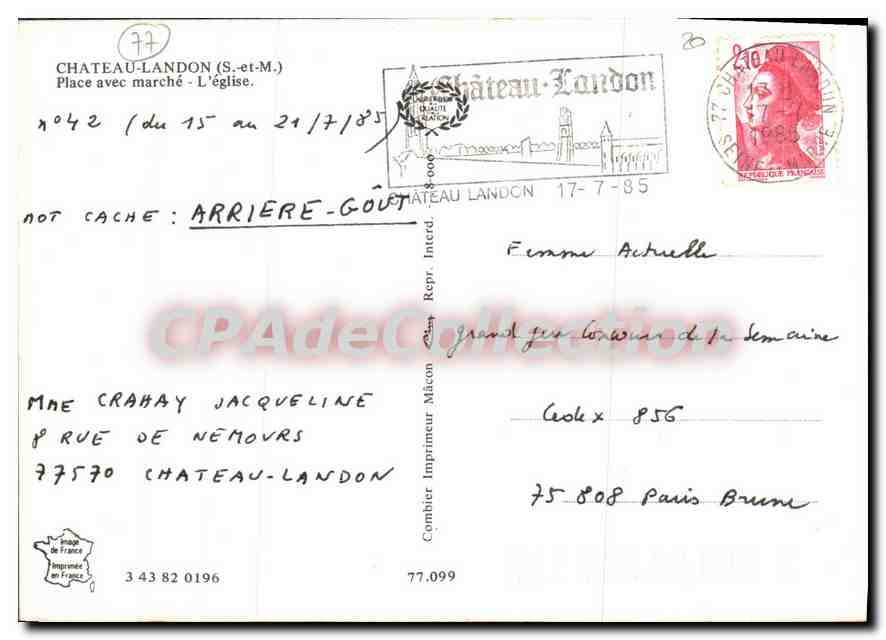 77
CHATEAU-LANDON (S.-et-M.)
Place avec marché - L'église.
n°42 (du 15 au 21/7/85)
MOT CACHE : ARRIERE-GOÛT
MME CRAHAY JACQUELINE
8 RUE DE NEMOURS
77570 CHATEAU-LANDON
Image
de France
Imprimée
en France
3 43 82 0196
77.099
Combier Imprimeur Mâcon Repr. Interd. 8-000
Château-Landon
QUALITÉ
CRÉATION
CHÂTEAU LANDON 17-7-85
20
2,10
RÉPUBLIQUE FRANÇAISE
77 CHATEAU LANDON
17-7
1985
SEINE ET MARNE
Femme Actuelle
grand jeu Concours de la Semaine
Cedex 856
75 808 Paris Brune
CPAdeCollection